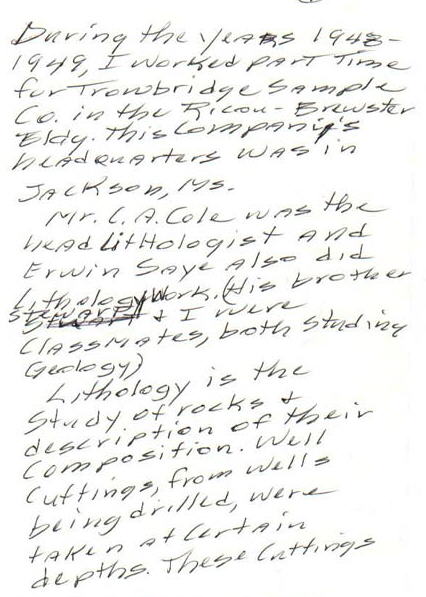 During the years 1948-
1949, I worked part time
for Trowbridge Sample
Co. in the Ricou-Brewster
Bldg. This Company's
headquarters was in
Jackson, Ms.
Mr. L. A. Cole was the
head Lithologist and
Erwin Saye also did
Lithology Work. (His brother
Stewart & I were
Classmates, both studing
Geology)
Lithology is the
study of rocks &
description of their
composition. Well
Cuttings, from wells
being drilled, were
taken at certain
depths. These Cuttings